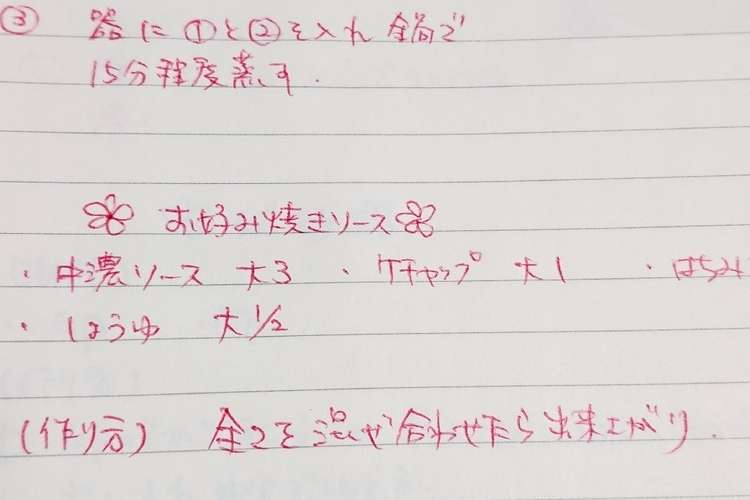 ③ 器に①と②を入れ 鍋で
15分程度蒸す.
お好み焼きソース
・中濃ソース 大3 ・ケチャップ 大1 ・はちみ
・しょうゆ 大1/2
(作り方) 全てを混ぜ合わせたら出来上がり.